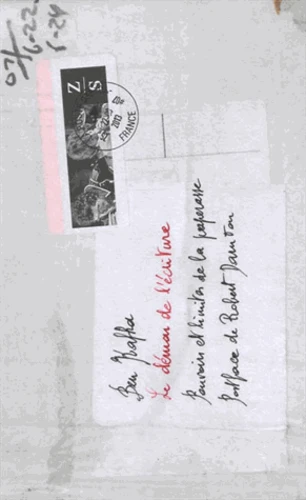 07/
6-22
5-24
Z
S
2013
FRANCE
Ben Kafka
Le démon de l'écriture
Pouvoirs et limites de la paperasse
Postface de Robert Darnton